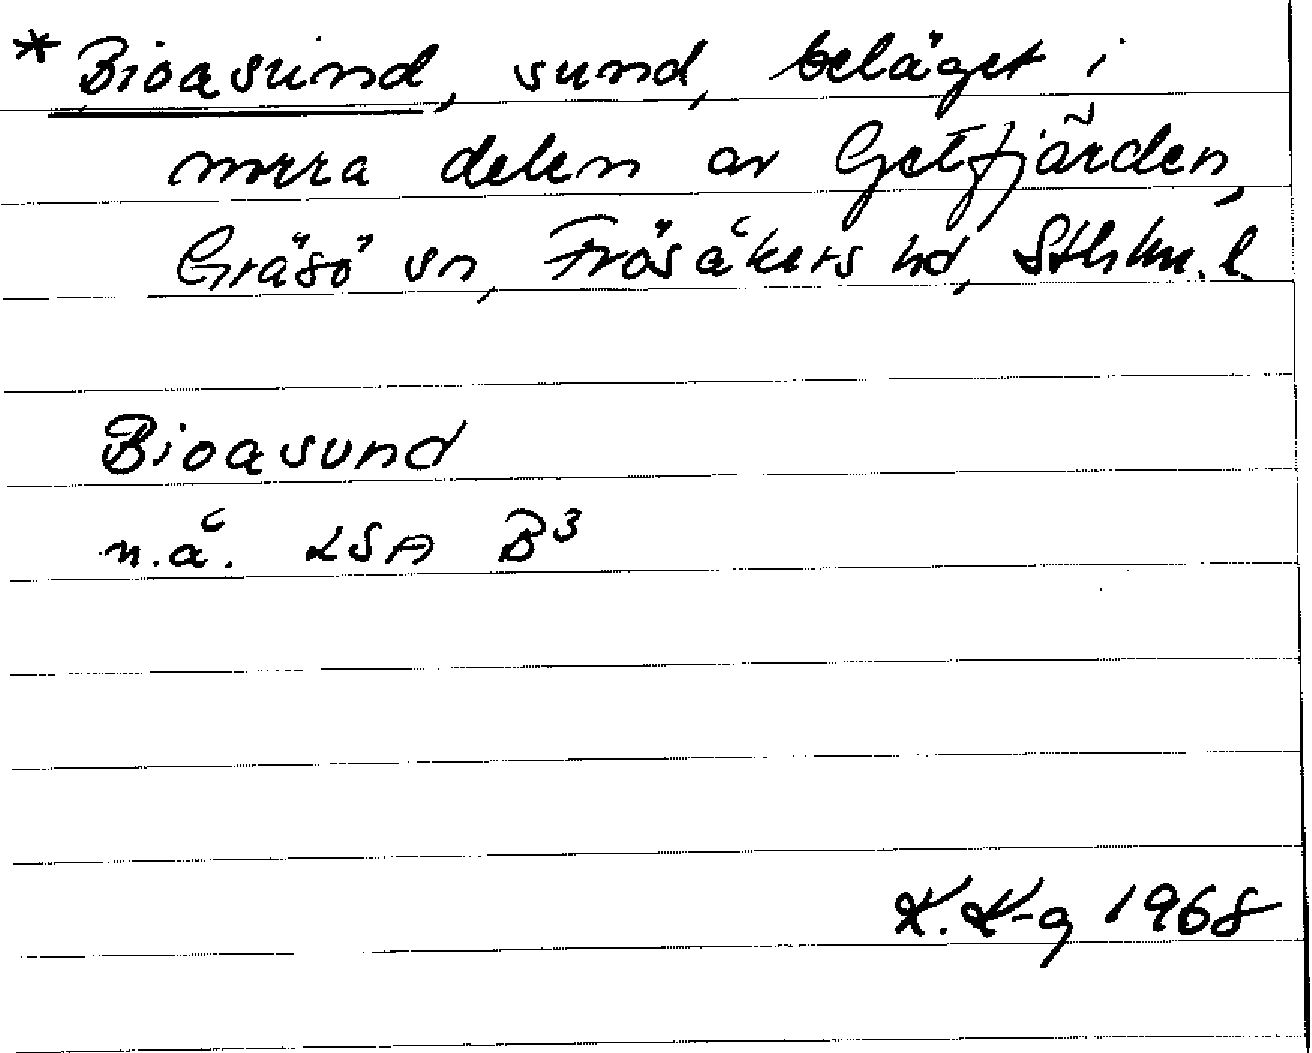 * Bioasund, sund, beläget i
norra delen av Getfjärden,
Gräsö sn, Frösåkers hd, Sthlm. l.
Bioasund
n.å. LSA B3
K. K-g 1968